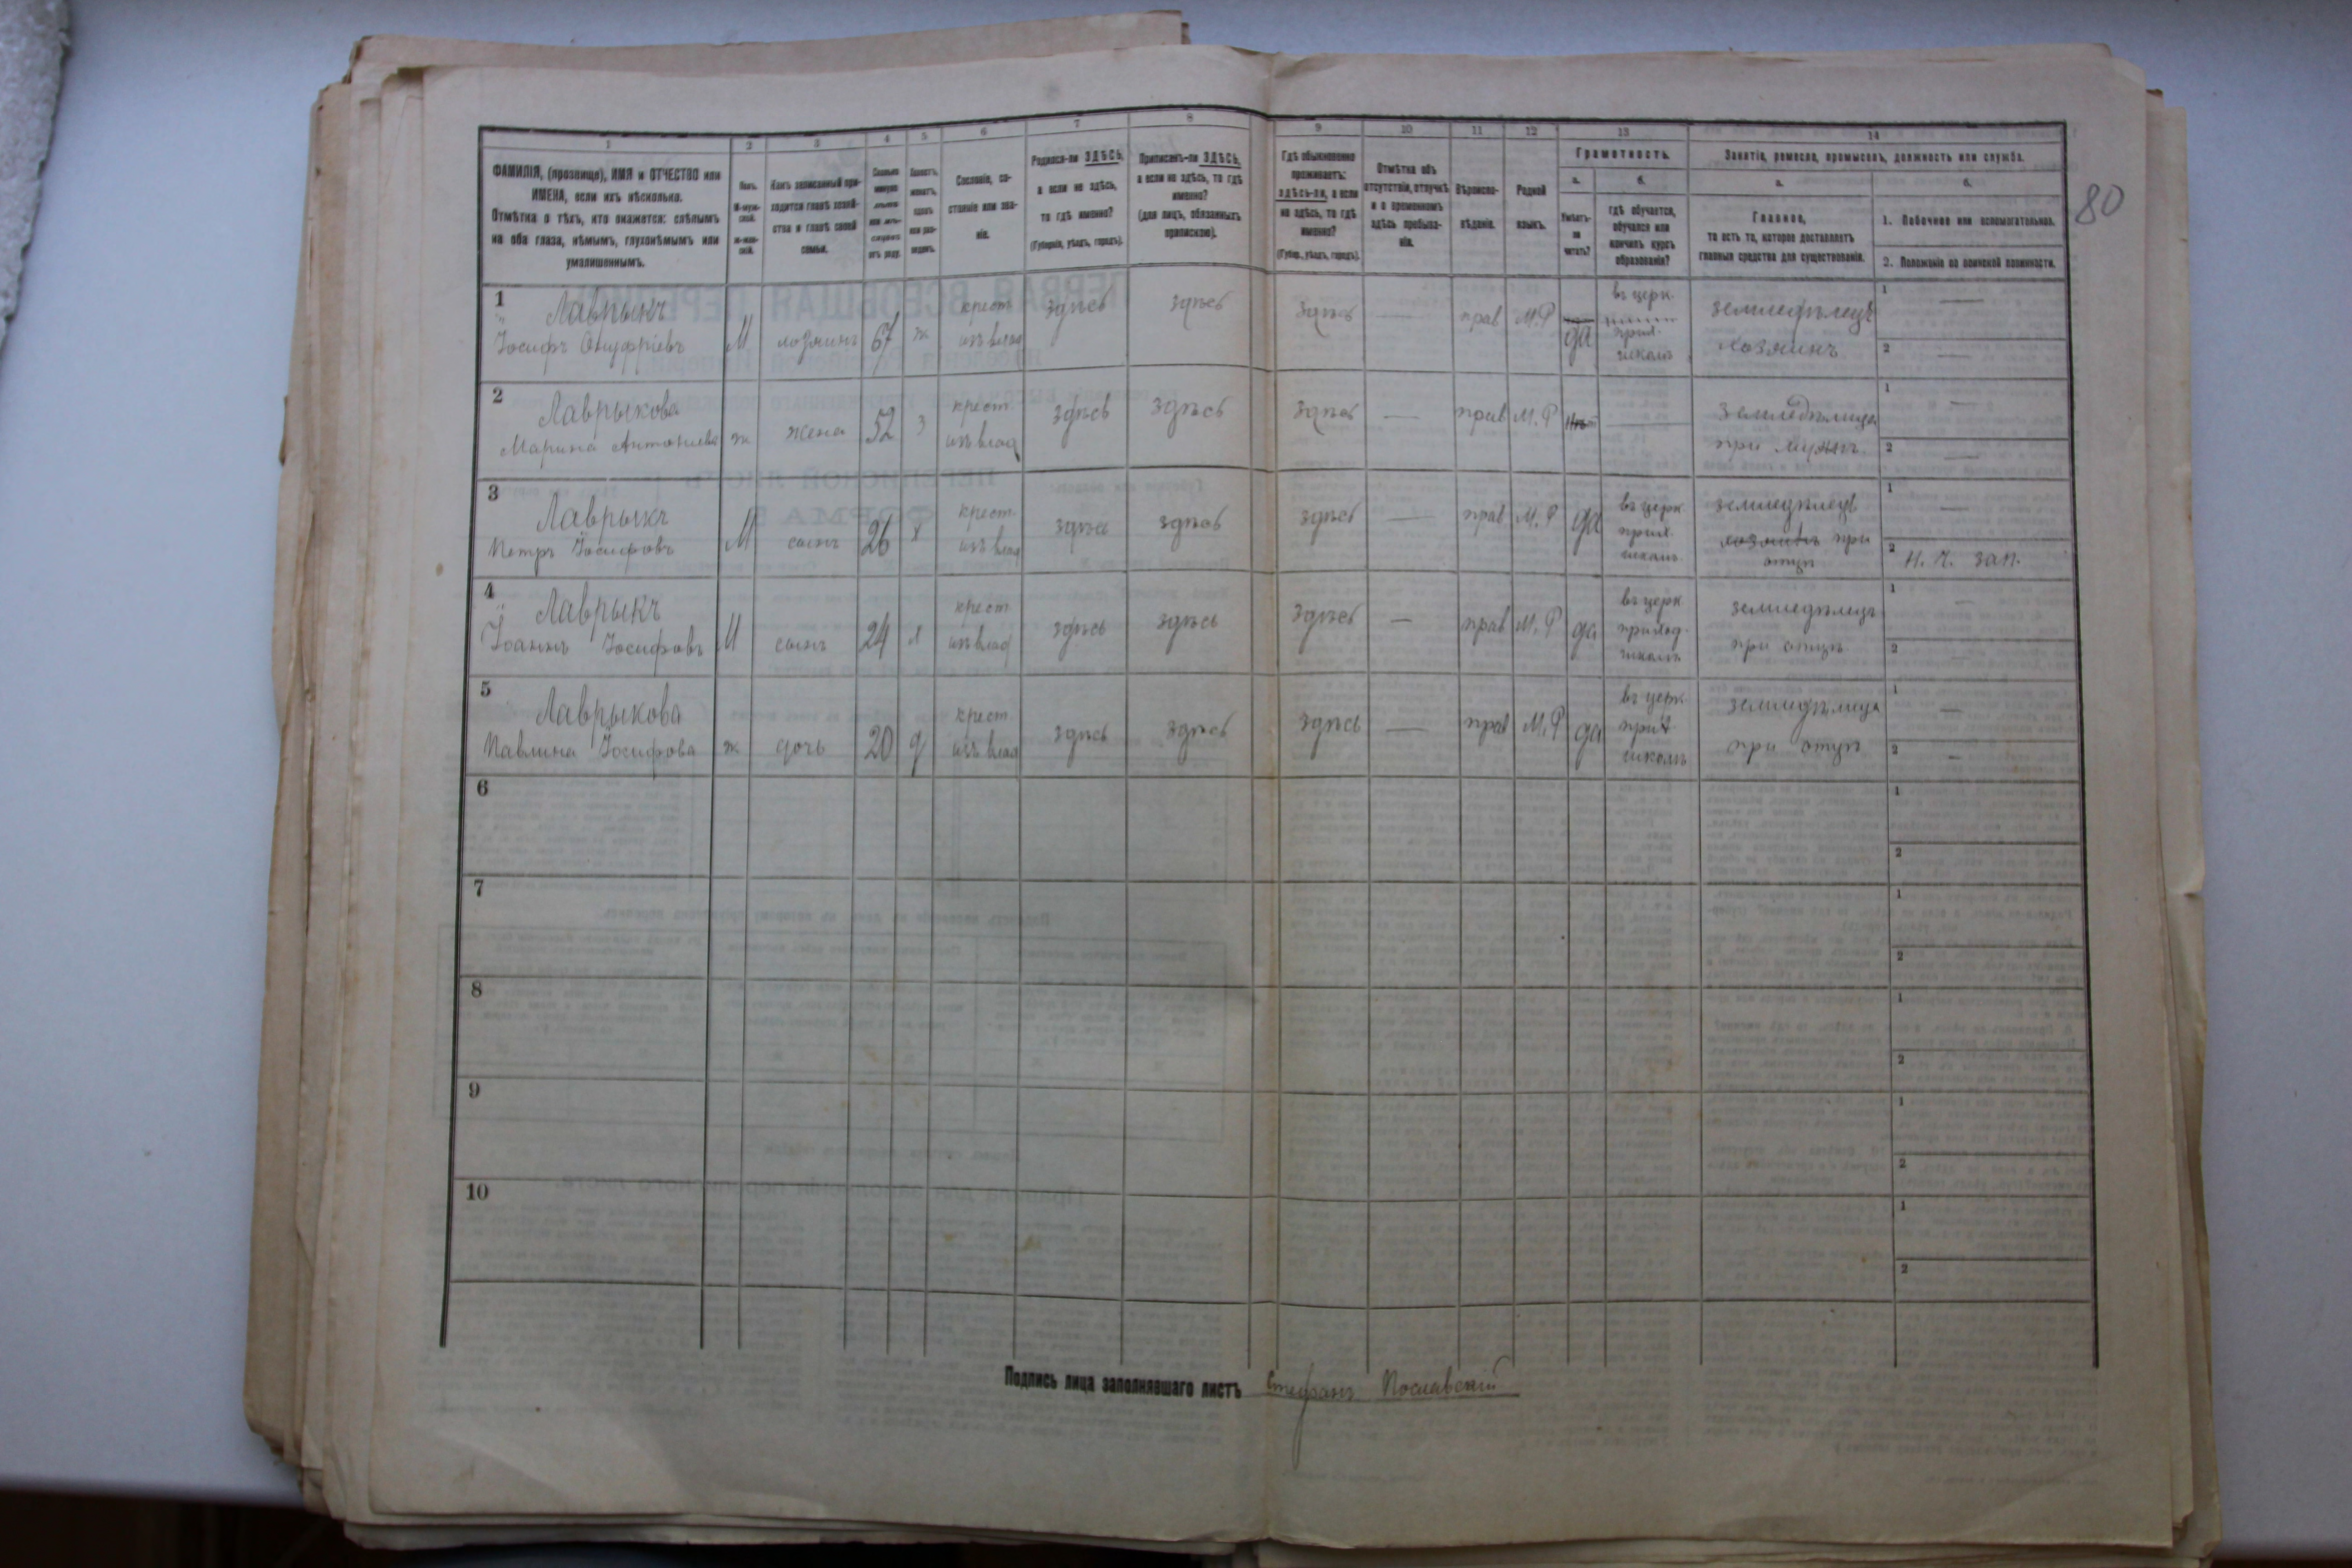 80
1
2
3
4
5
6
7
8
9
10
11
12
13
14
ФАМИЛІЯ, (прозвище), ИМЯ и ОТЧЕСТВО или
ИМЕНА, если ихъ нѣсколько.
Отмѣтка о тѣхъ, кто окажется: слѣпымъ
на оба глаза, нѣмымъ, глухонѣмымъ или
умалишеннымъ.
Полъ.
М-муж-
ской.
Ж-жен-
скій.
Какъ записанный при-
ходится главѣ хозяй-
ства и главѣ своей
семьи.
Сословіе, со-
стояніе или зва-
ніе.
Родился-ли ЗДѢСЬ,
а если не здѣсь,
то гдѣ именно?
(Губернія, уѣздъ, городъ).
Приписанъ-ли ЗДѢСЬ,
а если не здѣсь, то гдѣ
именно?
(для лицъ, обязанныхъ
припискою).
Гдѣ обыкновенно
проживаетъ:
здѣсь-ли, а если
не здѣсь, то гдѣ
именно?
(Губер., уѣздъ, городъ).
Отмѣтка объ
отсутствіи, отлучкѣ
и о временномъ
здѣсь пребыва-
ніи.
Вѣроиспо-
вѣданіе.
Родной
языкъ.
Грамотность.
а.
б.
Умѣетъ-
ли
читать?
гдѣ обучается,
обучался или
кончилъ курсъ
образованія?
Занятіе, ремесло, промыселъ, должность или служба.
а.
б.
Главное,
то есть то, которое доставляетъ
главныя средства для существованія.
1. Побочное или вспомогательное.
2. Положеніе по воинской повинности.
1 Лаврыкъ
Іосифъ Онуфріевъ М хозяинъ 67 ж крест. изъ влад здѣсь здѣсь здѣсь — прав М.Р да въ церк. прих. школѣ земледѣлецъ хозяинъ 1 — 2 —
2 Лаврыкова
Марина Антониева ж жена 52 з крест. изъ влад здѣсь здѣсь здѣсь — прав М.Р — земледѣлица при мужѣ. 1 — 2 —
3 Лаврыкъ
Петръ Іосифовъ М сынъ 26 х крест. изъ влад здѣсь здѣсь здѣсь — прав М.Р да въ церк прих. школѣ земледѣлецъ хозяинъ при отцѣ 1 — 2 Н. Ч. зап.
4 Лаврыкъ
Іоаннъ Іосифовъ М сынъ 24 х крест изъ влад здѣсь здѣсь здѣсь — прав М.Р да въ церк приход. школѣ земледѣлецъ при отцѣ 1 — 2 —
5 Лаврыкова
Павлина Іосифова ж дочь 20 д крест. изъ влад здѣсь здѣсь здѣсь — прав М.Р да въ церк. прих школѣ земледѣлица при отцѣ 1 — 2 —
6 1
2
7 1
2
8 1
2
9 1
2
10 1
2
Подпись лица заполнявшаго листъ Стефанъ Пославскій